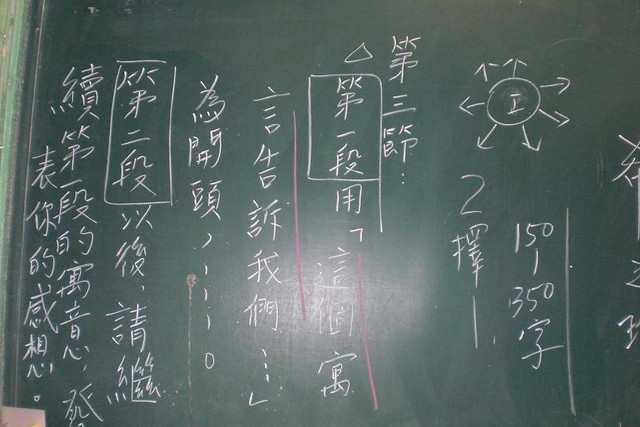 150
|
350
字
2擇一.
第三節:
△第一段用「這個寓
言告訴我們…」
為開頭,……。
第二段以後,請繼
續第一段的寓意,發
表你的感想。